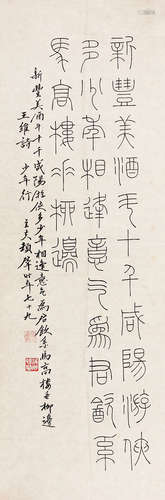 新豐美酒斗十千咸陽游俠
多少年相逢意气為君飲系
馬高樓垂柳邊
新豐美酒斗十千咸陽游俠多少年相逢意气為君飲系馬高樓垂柳邊
王維詩 少年行 年七十九